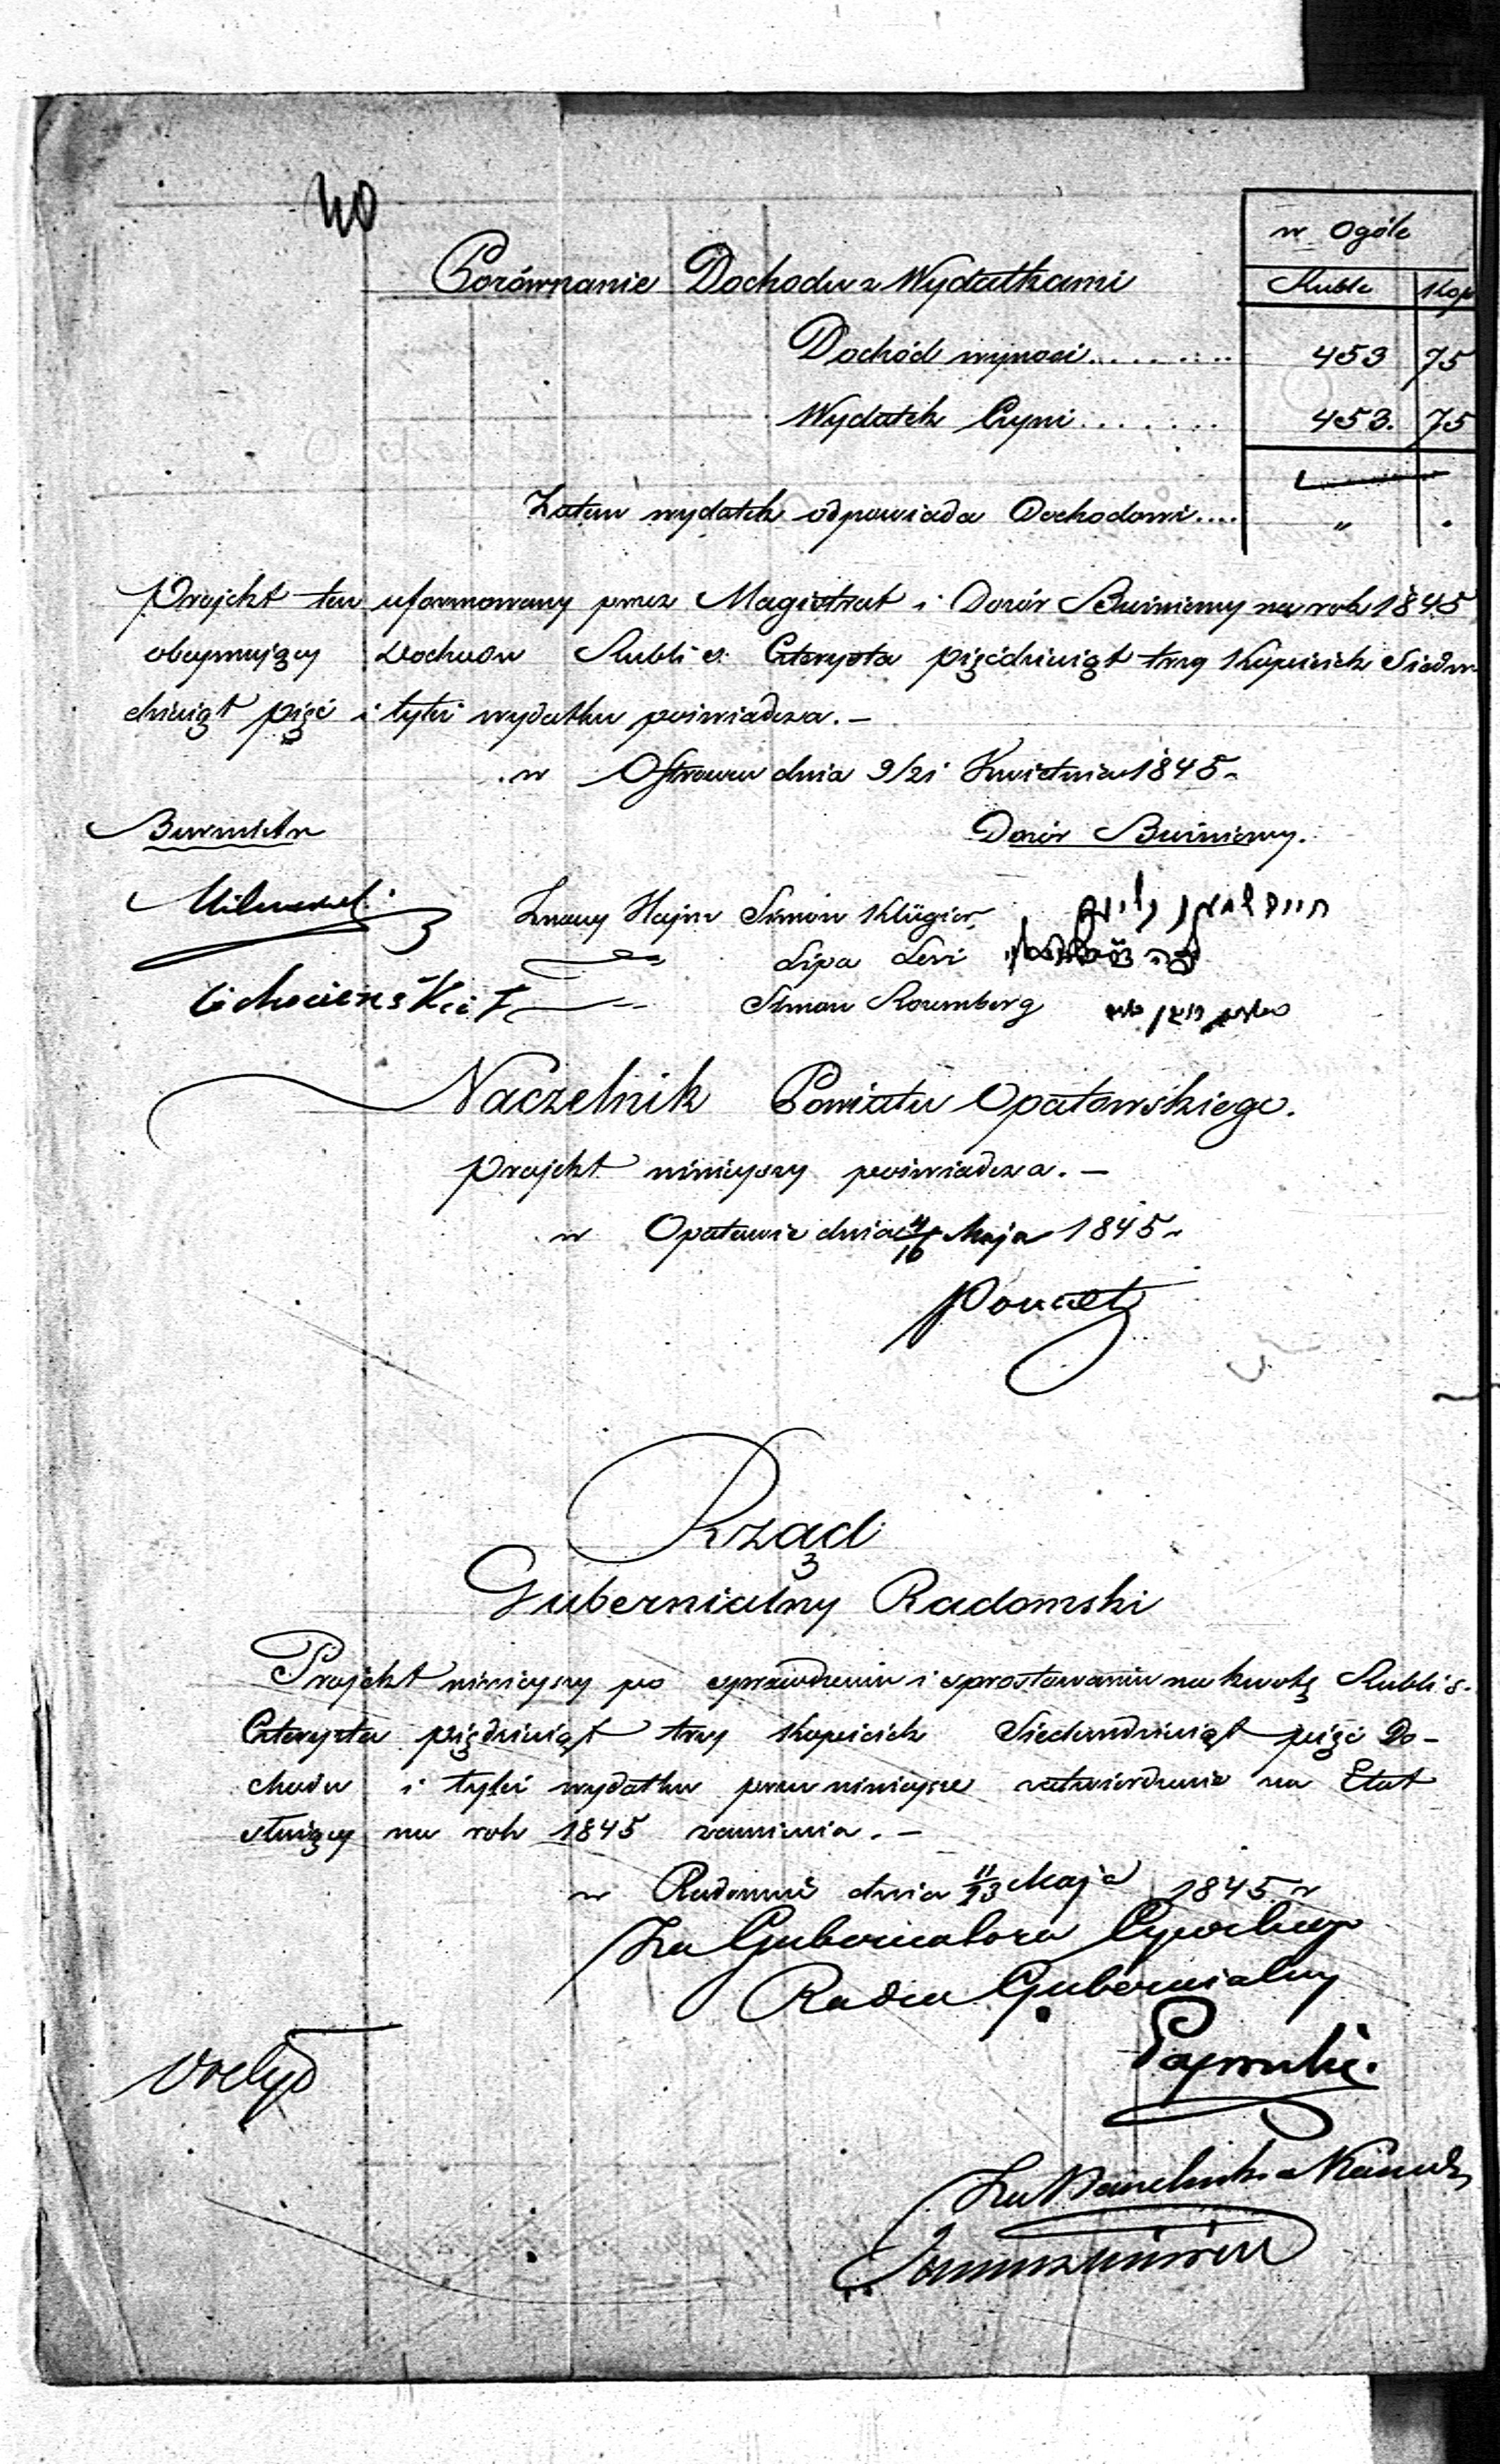 40
w Ogóle
Porównanie Dochodu z Wydatkami
Ruble Kop
Dochód wynosi......... 453 75
Wydatek Czyni....... 453. 75
Zatem wydatek odpowiada Dochodowi.... „ .
Projekt ten uformowany przez Magistrat i Dozór Bużniczny na rok 1845
obeymujący Dochodu Rubli s. Czterysta pięćdziesiąt trzy Kopieiek Siedm
dziesiąt pięć i tyleż wydatku poświadcza. –
w Ostrowcu dnia 9/21 Kwietnia 1845 r
Burmistrz
Dozór Bużniczny.
Znany Hajm Simon Klügier
Lipa Levi
Cichocieński
Simon Rozenberg
Naczelnik Powiatu Opatowskiego.
Projekt ninieyszy poświadcza. –
w Opatowie dnia 4/16 Maja 1845 r
Rząd
Gubernialny Radomski
Projekt ninieyszy po sprawdzeniu i sprostowaniu na kwotę Rubli s.
Czterysta pięćdziesiąt trzy Kopieiek Siedemdziesiąt pięć Do-
chodu i tyleż wydatku przez ninieysze zatwierdzenie na Etat
służący na rok 1845 zamienia. –
w Radomiu dnia 11/23 Maja 1845 r
Za Gubernatora Cywilnego
Radca Gubernialny
Za Naczelnika Kancel